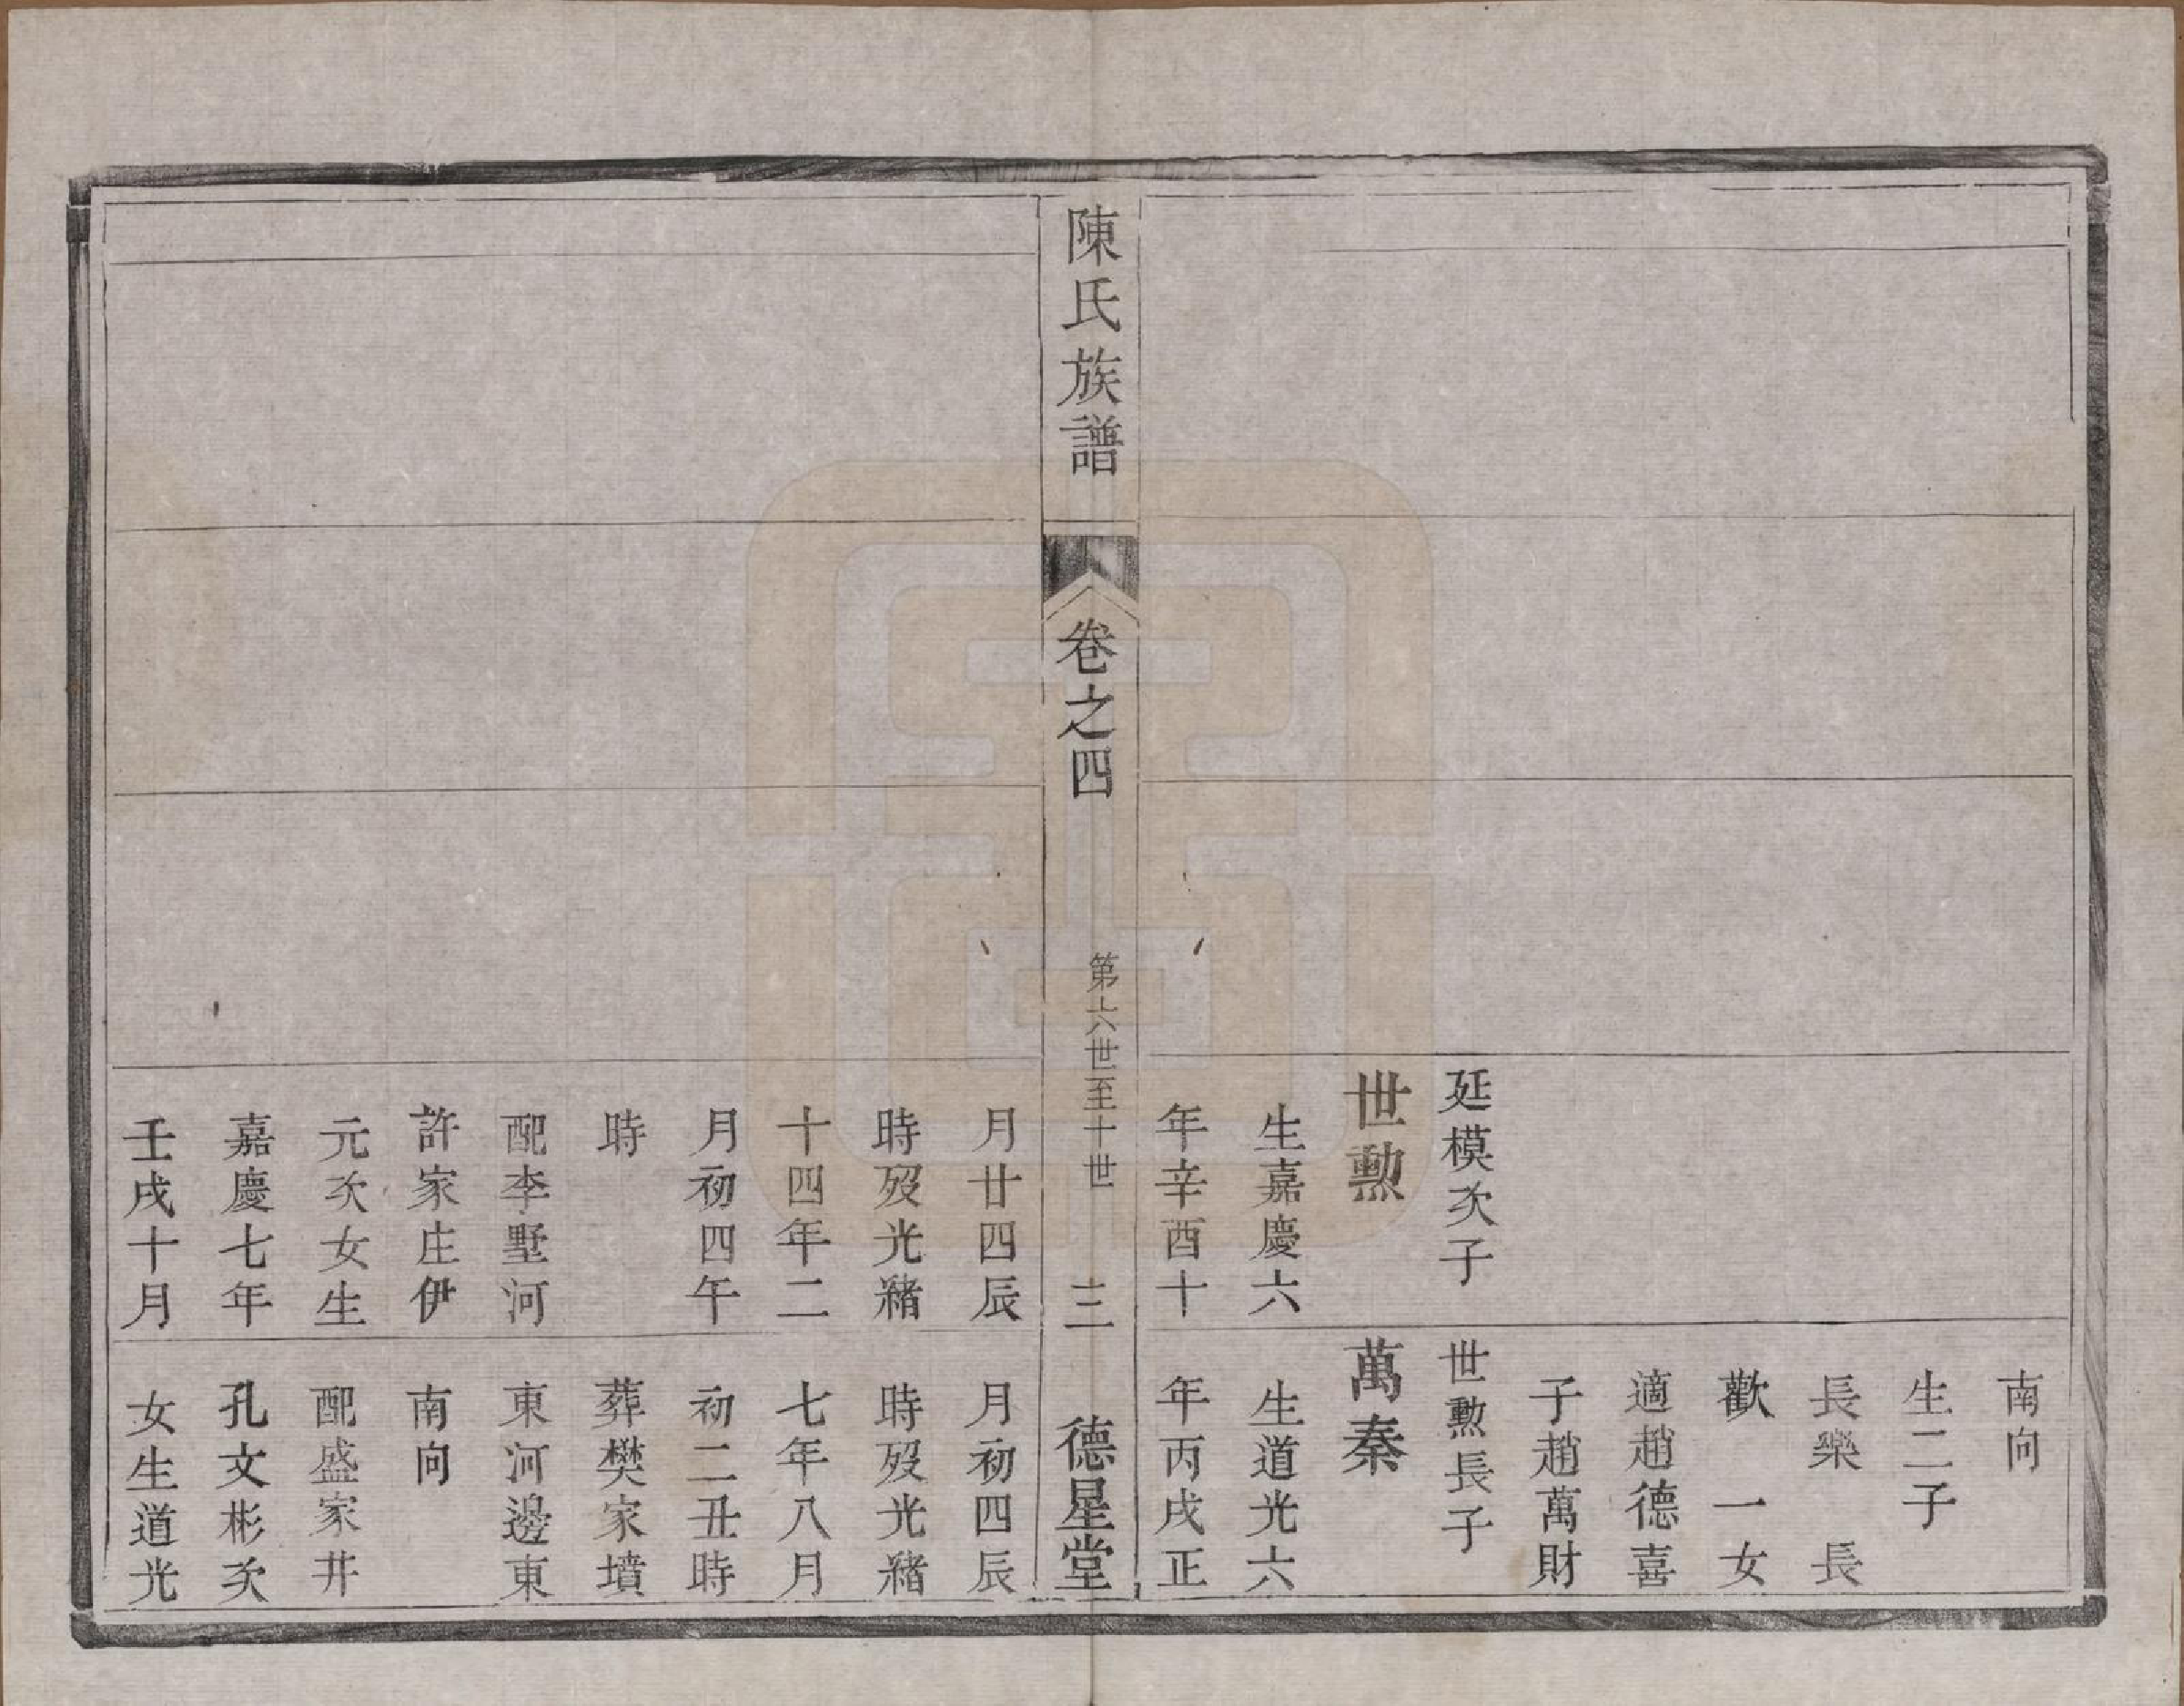 延模次子
世勲
生嘉慶六
年辛酉十
南向
生二子
長樂　長
歡　一女
適趙德喜
子趙萬財
世勲長子
萬秦
生道光六
年丙戌正
陳氏族譜
卷之四
第六世至十世
三
德星堂
月廿四辰
時歿光緒
十四年二
月初四午
時
配李墅河
許家庄伊
元次女生
嘉慶七年
壬戌十月
月初四辰
時歿光緒
七年八月
初二丑時
葬樊家墳
東河邊東
南向
配盛家井
孔文彬次
女生道光